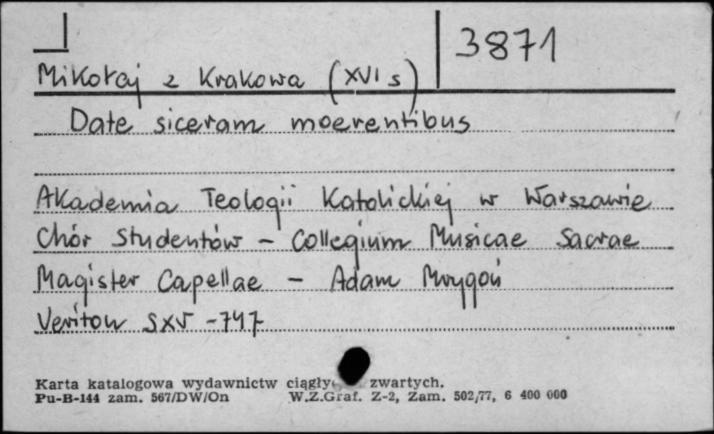 3871
Mikołaj z Krakowa (XVI s)
Date siceram moerentibus
Akademia Teologii Katolickiej w Warszawie
Chór Studentów - Collegium Musicae Sacrae
Magister Capellae - Adam Mrygoń
Veriton SXV - 747
Karta katalogowa wydawnictw ciągły zwartych.
Pu-B-144 zam. 567/DW/On W.Z.Graf. Z-2, Zam. 502/77, 6 400 000